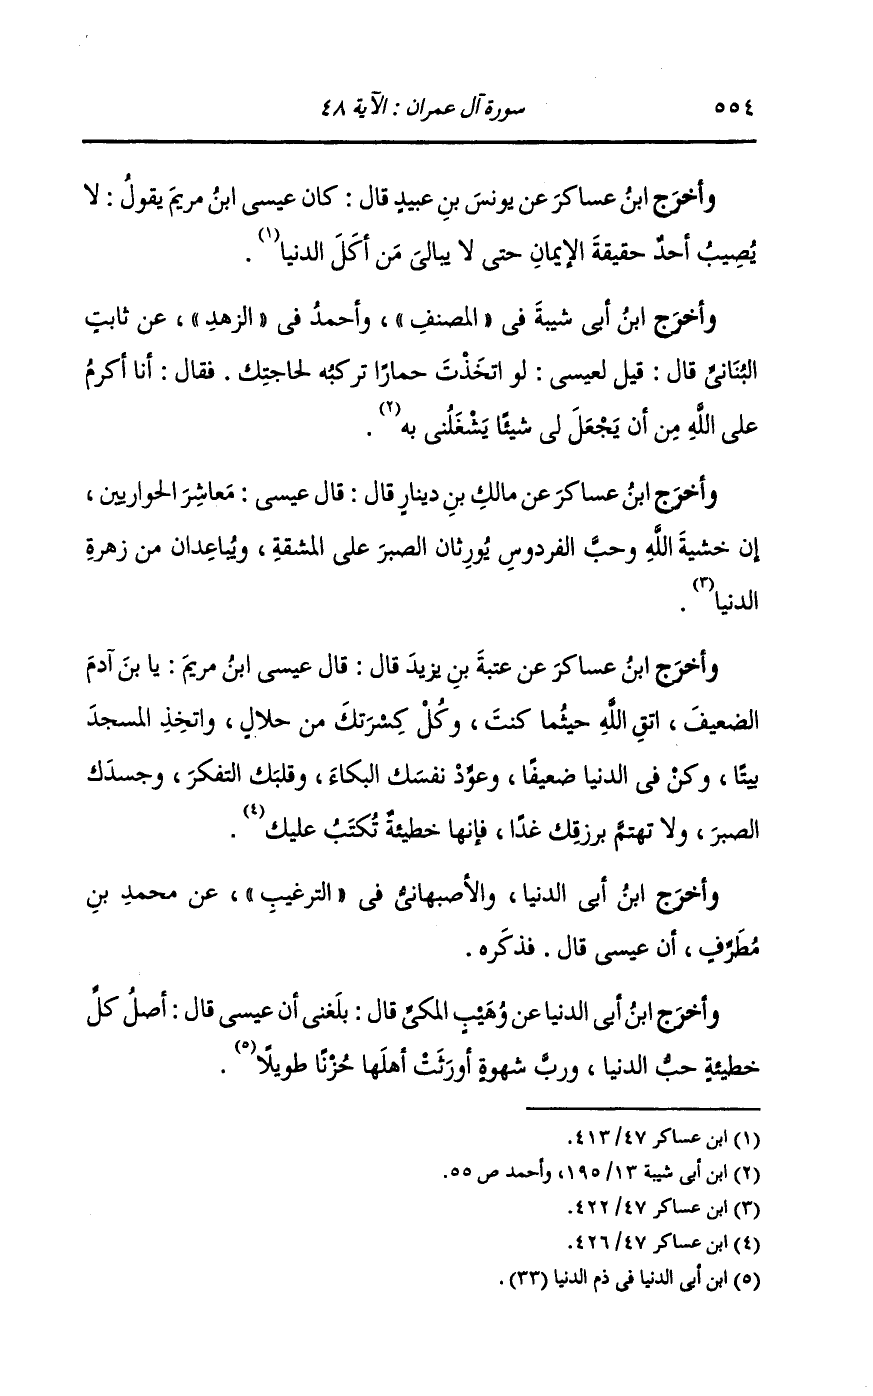 ٥٥٤ سورة آل عمران : الآية ٤٨
وأخرَج ابنُ عساكرَ عن يونسَ بنِ عبيدٍ قال : كان عيسى ابنُ مريمَ يقولُ : لا
يُصِيبُ أحدٌ حقيقةَ الإيمانِ حتى لا يبالىَ مَن أكَلَ الدنيا(١) .
وأخرَج ابنُ أبى شيبةَ فى « المصنفِ » ، وأحمدُ فى « الزهدِ » ، عن ثابتٍ
البُنَانىِّ قال : قيل لعيسى : لو اتخَذْتَ حمارًا تركبُه لحاجتِك . فقال : أنا أكرمُ
على اللَّهِ مِن أن يَجْعَلَ لى شيئًا يَشْغَلُنى به(٢) .
وأخرَج ابنُ عساكرَ عن مالكِ بنِ دينارٍ قال : قال عيسى : مَعاشِرَ الحواريين ،
إن خشيةَ اللَّهِ وحبَّ الفردوسِ يُورِثان الصبرَ على المشقةِ ، ويُباعِدان من زهرةِ
الدنيا(٣) .
وأخرَج ابنُ عساكرَ عن عتبةَ بنِ يزيدَ قال : قال عيسى ابنُ مريمَ : يا بنَ آدمَ
الضعيفَ ، اتقِ اللَّهِ حيثُما كنتَ ، وكُلْ كِسْرَتَكَ من حلالٍ ، واتخِذِ المسجدَ
بيتًا ، وكنْ فى الدنيا ضعيفًا ، وعوِّدْ نفسَك البكاءَ ، وقلبَك التفكرَ ، وجسدَك
الصبرَ ، ولا تهتمَّ برزقِك غدًا ، فإنها خطيئةٌ تُكتَبُ عليك(٤) .
وأخرَج ابنُ أبى الدنيا ، والأصبهانىُّ فى « الترغيبِ » ، عن محمدِ بنِ
مُطَرِّفٍ ، أن عيسى قال . فذكَره .
وأخرَج ابنُ أبى الدنيا عن وُهَيْبٍ المكىِّ قال : بلَغنى أن عيسى قال : أصلُ كلِّ
خطيئةٍ حبُّ الدنيا ، وربَّ شهوةٍ أورَثَتْ أهلَها حُزْنًا طويلًا(٥) .
(١) ابن عساكر ٤٧/ ٤١٣.
(٢) ابن أبى شيبة ١٣/ ١٩٥، وأحمد ص ٥٥.
(٣) ابن عساكر ٤٧/ ٤٢٢.
(٤) ابن عساكر ٤٧/ ٤٢٦.
(٥) ابن أبى الدنيا فى ذم الدنيا (٣٣) .